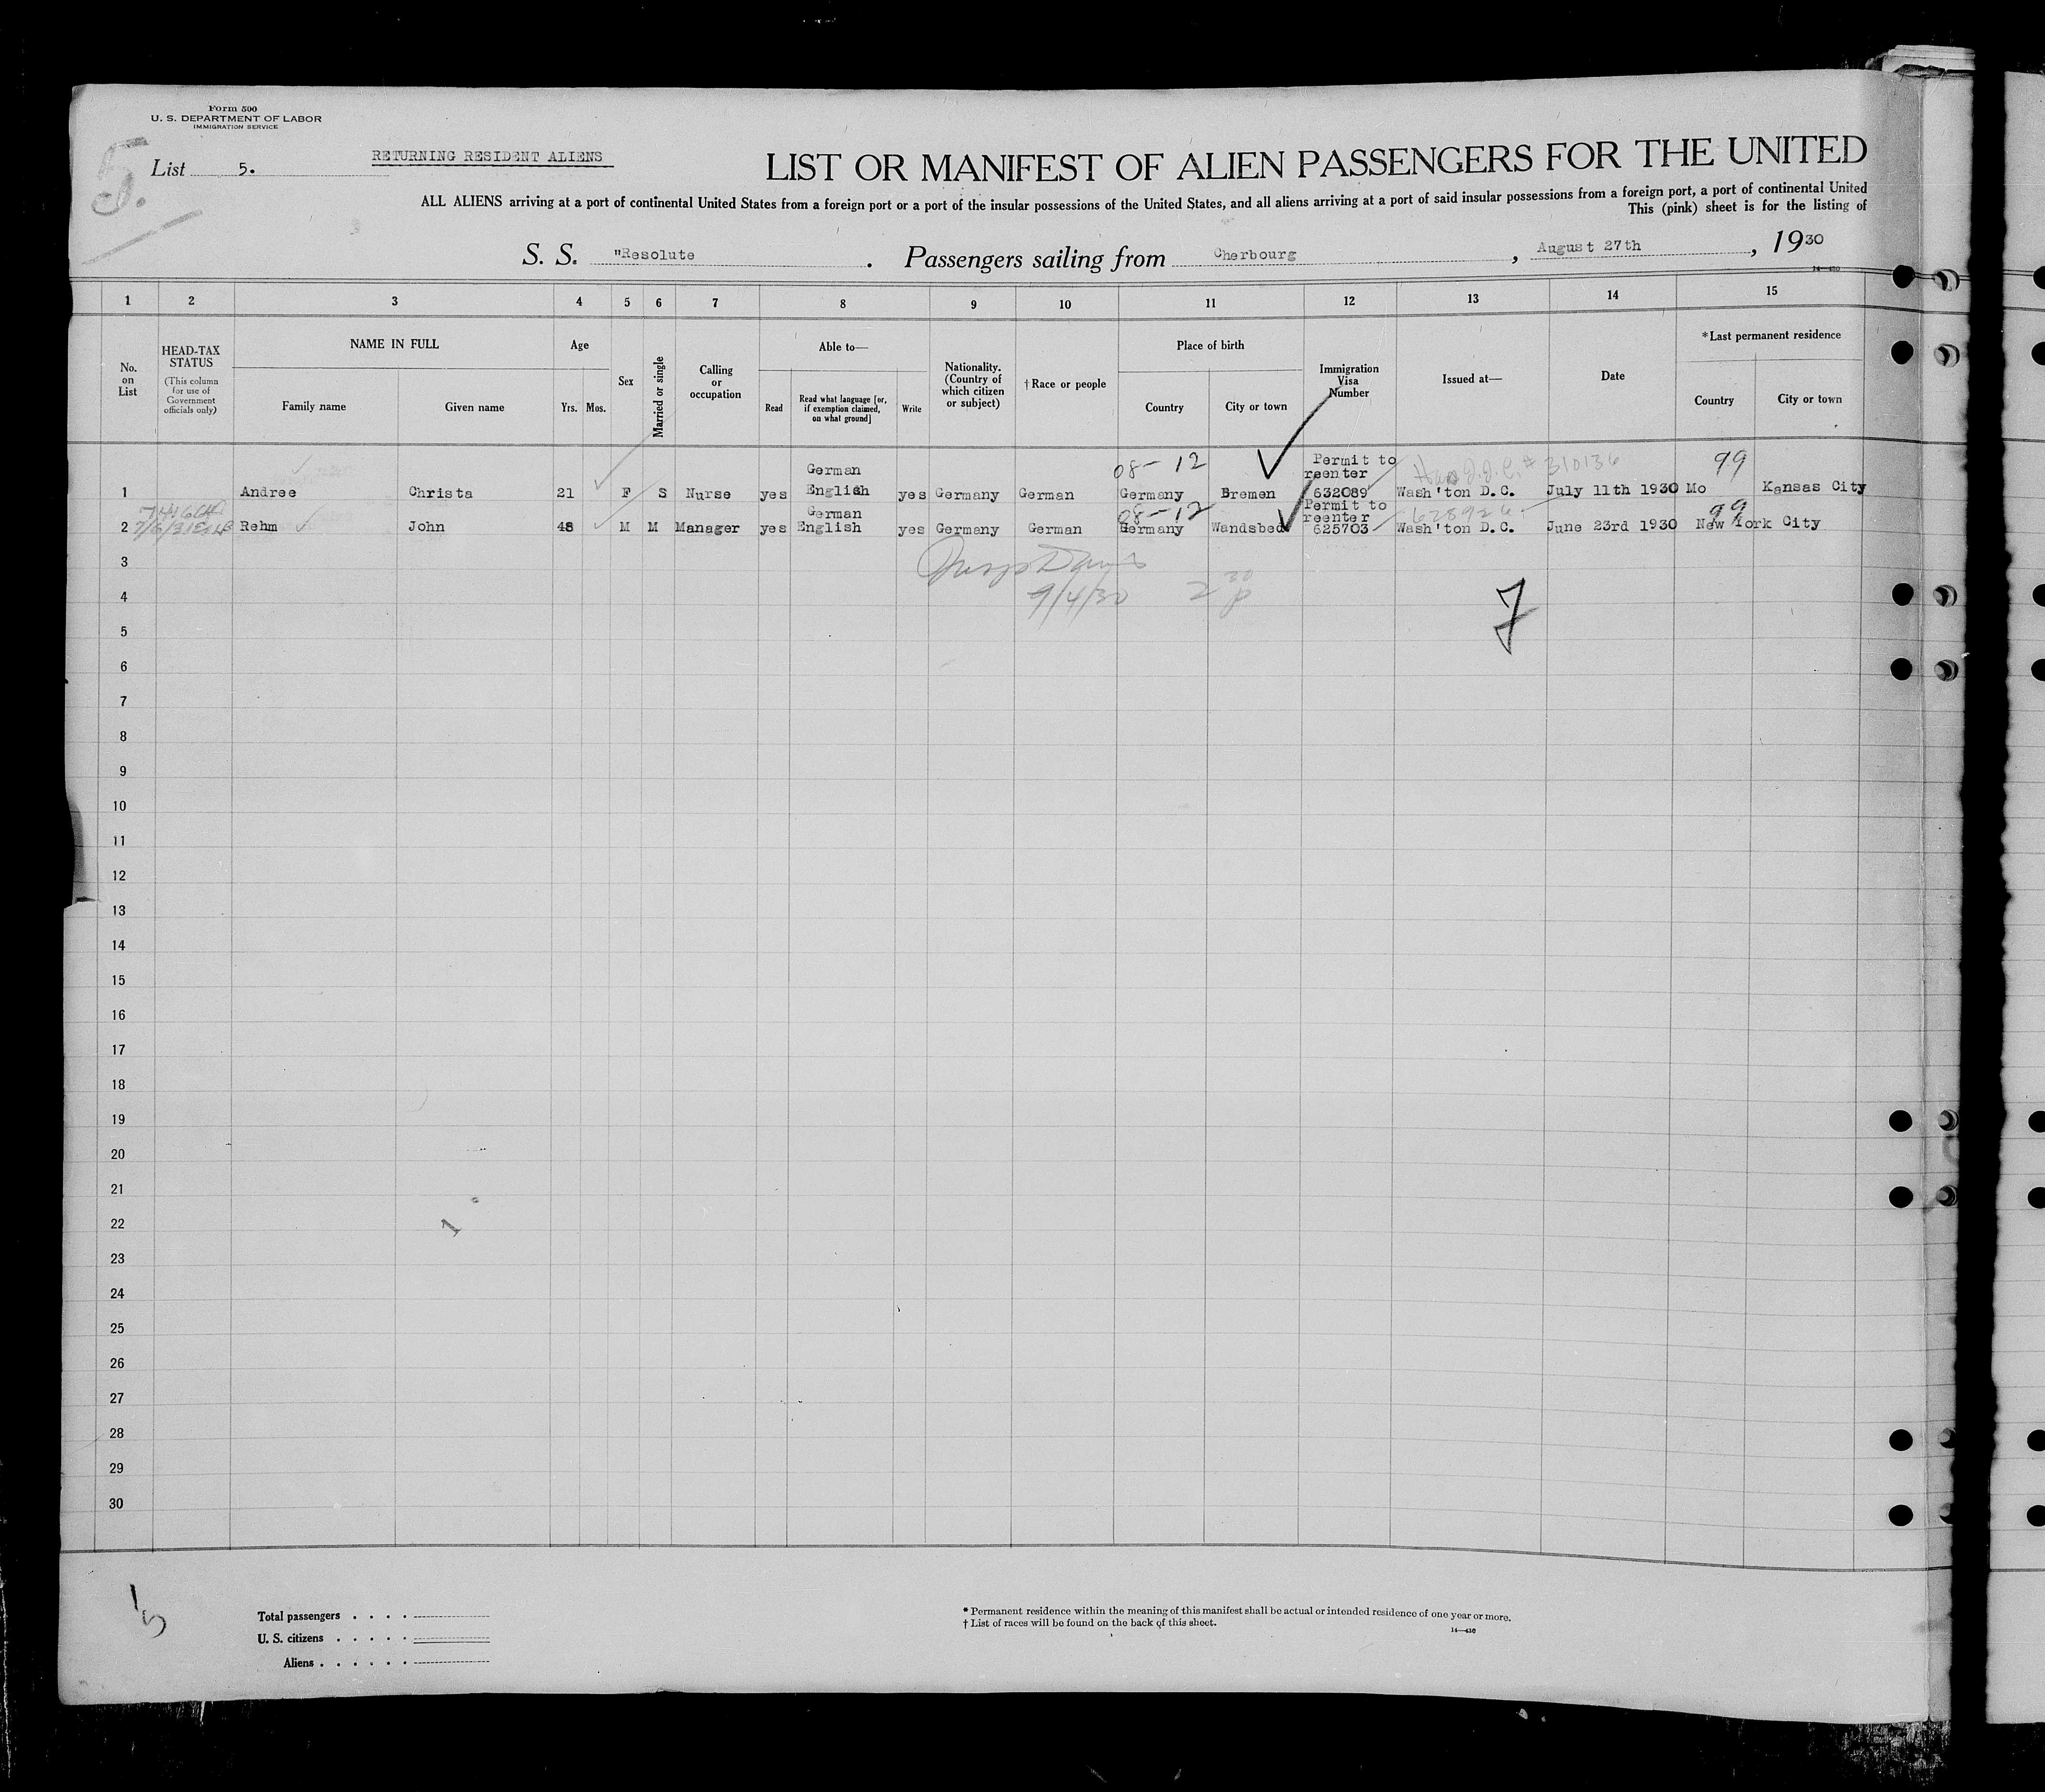 Form 500
U. S. DEPARTMENT OF LABOR
IMMIGRATION SERVICE
5.
List 5.
RETURNING RESIDENT ALIENS
LIST OR MANIFEST OF ALIEN PASSENGERS FOR THE UNITED
ALL ALIENS arriving at a port of continental United States from a foreign port or a port of the insular possessions of the United States, and all aliens arriving at a port of said insular possessions from a foreign port, a port of continental United
This (pink) sheet is for the listing of
S. S. "Resolute . Passengers sailing from Cherbourg , August 27th , 1930
14—430
1 2 3 4 5 6 7 8 9 10 11 12 13 14 15
No. on List
HEAD-TAX STATUS
(This column for use of Government officials only)
NAME IN FULL
Family name Given name
Age
Yrs. Mos.
Sex
Married or single
Calling or occupation
Able to—
Read
Read what language [or, if exemption claimed, on what ground]
Write
Nationality. (Country of which citizen or subject)
† Race or people
Place of birth
Country City or town
Immigration Visa Number
Issued at—
Date
*Last permanent residence
Country City or town
08-12 99
German Permit to reenter 310136
1 Andree Christa 21 F S Nurse yes English yes Germany German Germany Bremen 632089 Wash'ton D.C. July 11th 1930 Mo Kansas City
08-12 99
German Permit to reenter 628926
2 Rehm John 48 M M Manager yes English yes Germany German Germany Wandsbed 625703 Wash'ton D.C. June 23rd 1930 New York City
3
9/4/30 2 30 p
4
7
5
6
7
8
9
10
11
12
13
14
15
16
17
18
19
20
21
22
23
24
25
26
27
28
29
30
Total passengers . . . .
U. S. citizens . . . . .
Aliens . . . . . .
* Permanent residence within the meaning of this manifest shall be actual or intended residence of one year or more.
† List of races will be found on the back of this sheet.
14—430